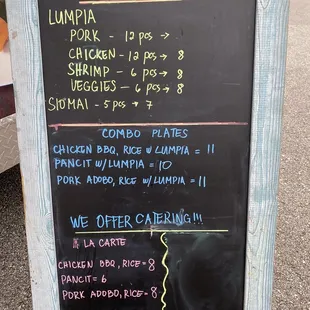 LUMPIA
PORK - 12 pcs →
CHICKEN - 12 pcs → 8
SHRIMP - 6 pcs → 8
VEGGIES - 6 pcs → 8
SIOMAI - 5 pcs → 7
COMBO PLATES
CHICKEN BBQ, RICE W LUMPIA = 11
PANCIT W/ LUMPIA = 10
PORK ADOBO, RICE W/ LUMPIA = 11
WE OFFER CATERING!!!
LA CARTE
CHICKEN BBQ, RICE = 8
PANCIT = 6
PORK ADOBO, RICE = 8